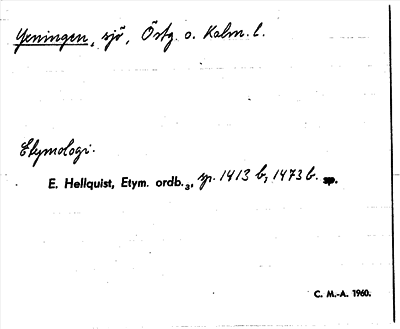 Yxningen, sjö, Östg. o. Kalm. l.
Etymologi.
E. Hellquist, Etym. ordb.₃, sp. 1413 b, 1473 b.
C. M.-A. 1960.